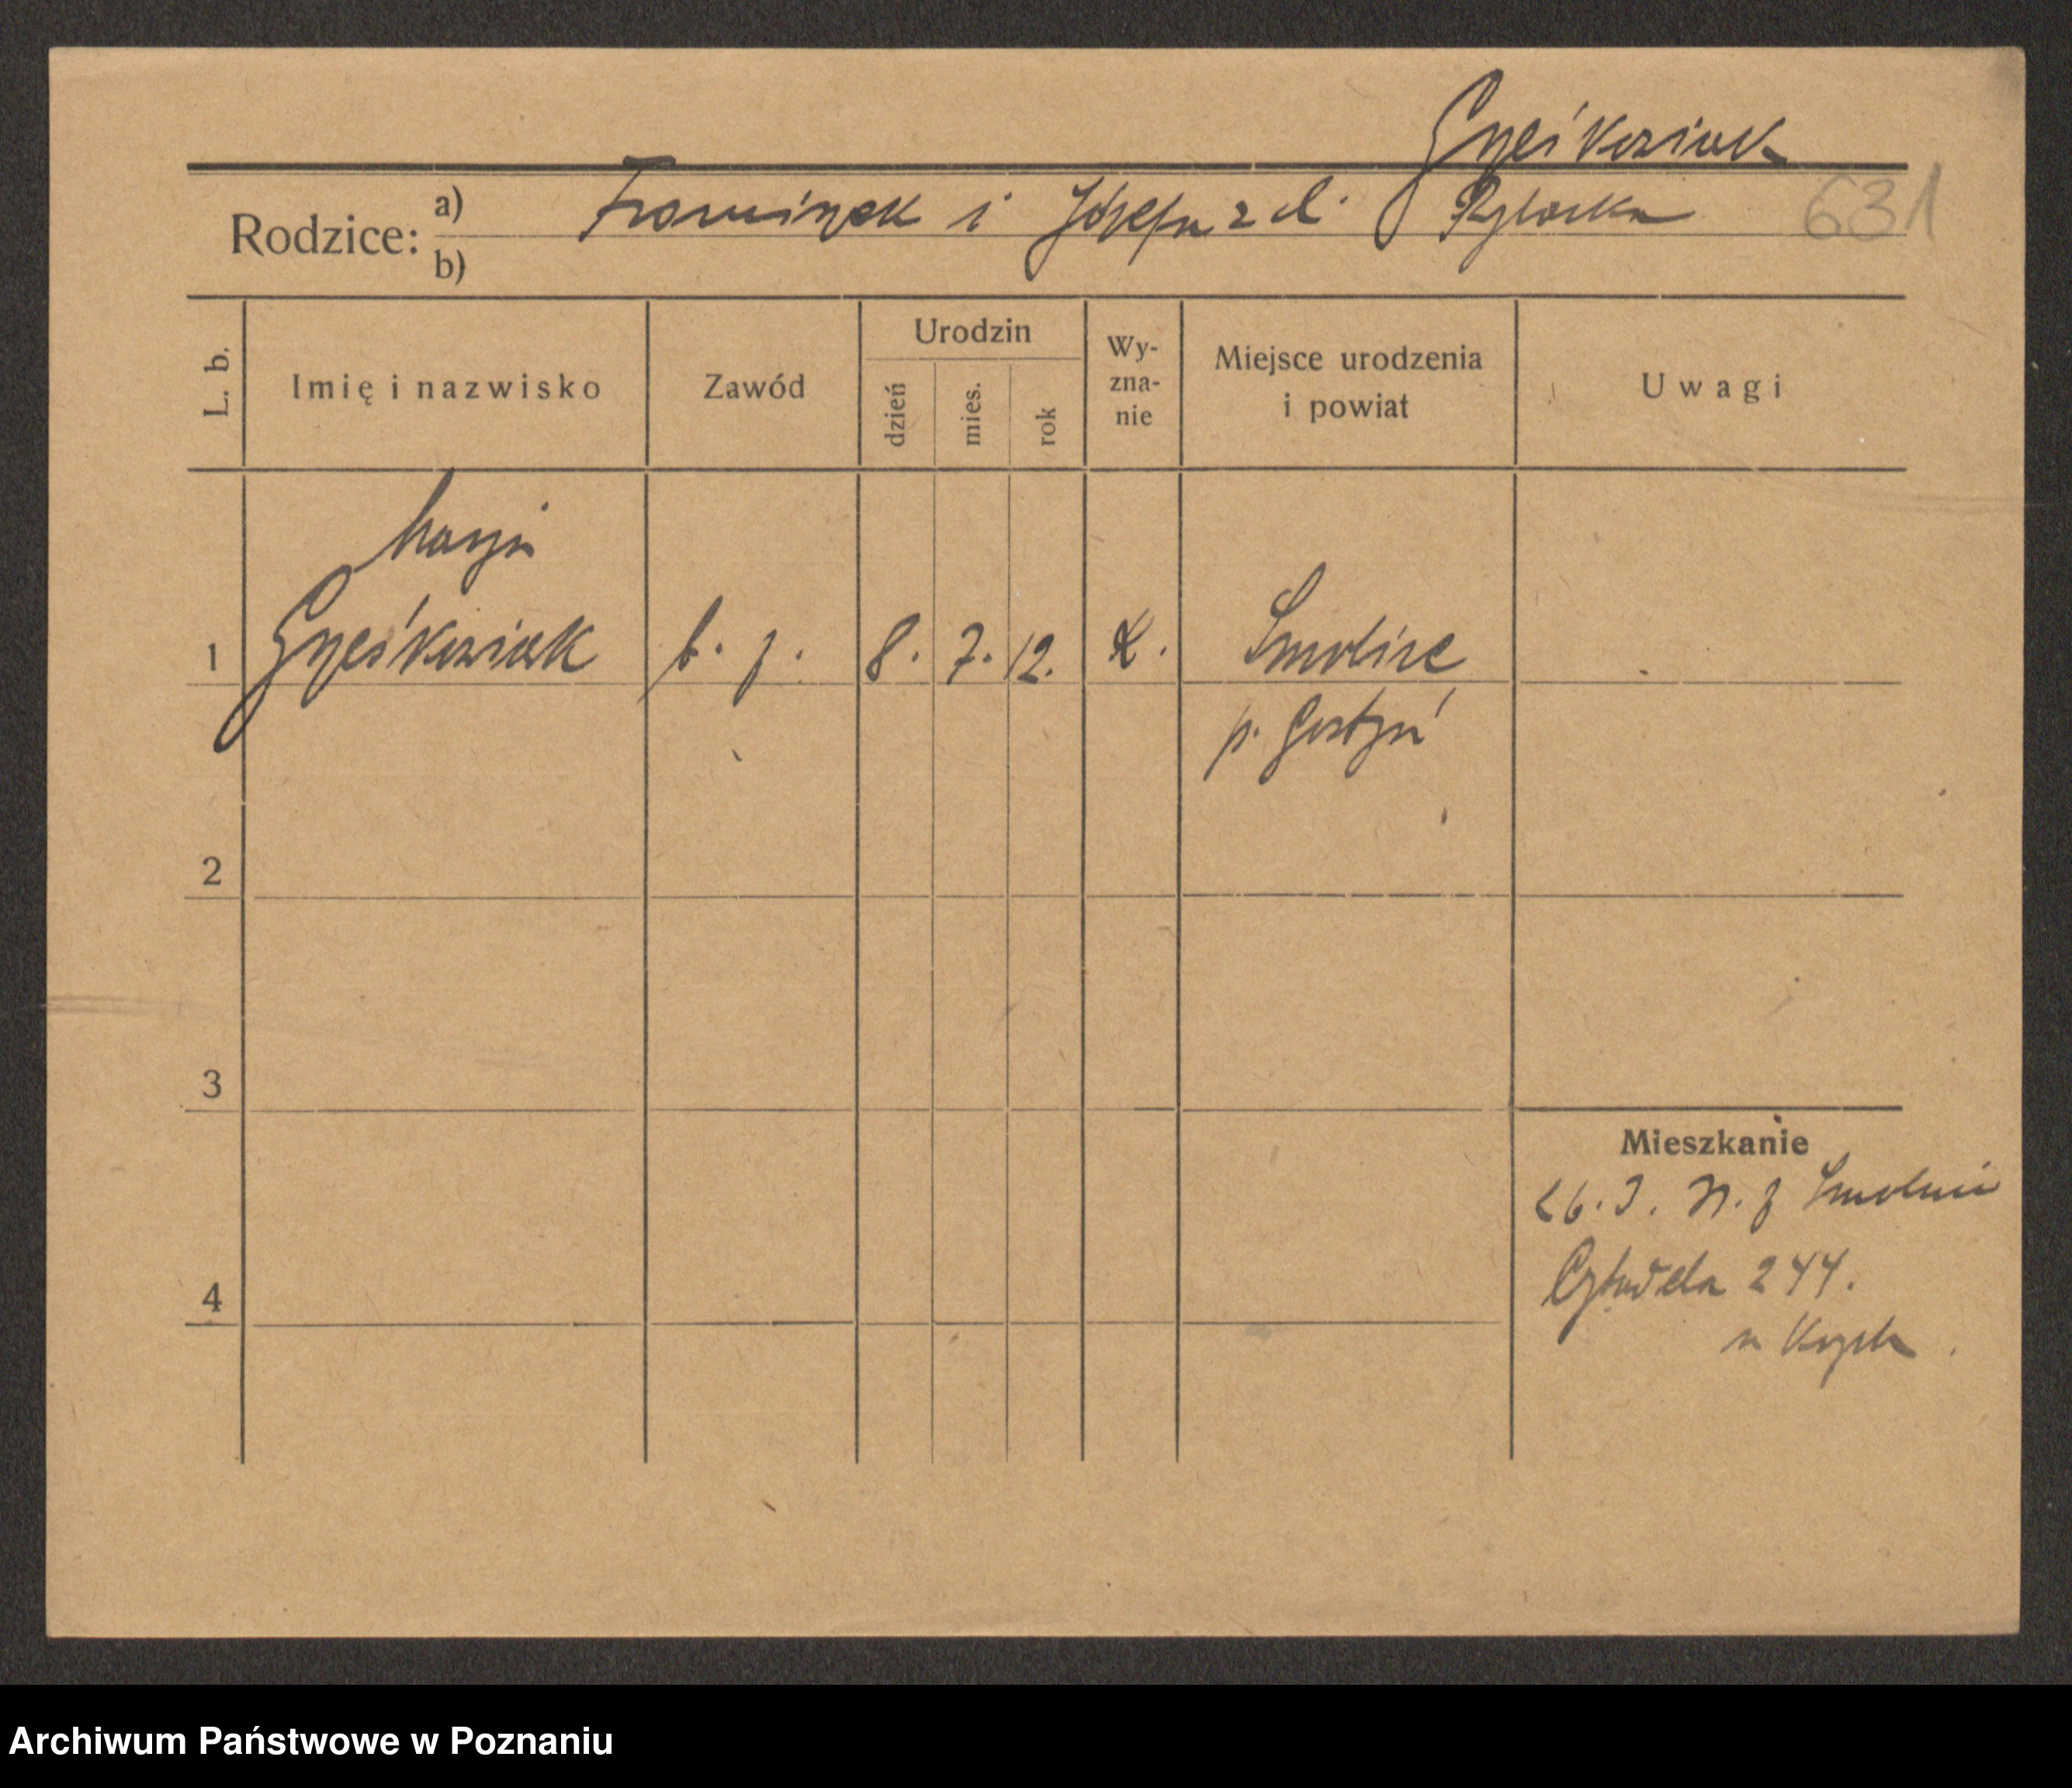 Grześkowiak
Rodzice: a) Franciszek i Józefa z d. Rybacka 631
b)
L. b. Imię i nazwisko Zawód Urodzin dzień mies. rok Wy-zna-nie Miejsce urodzenia i powiat Uwagi
Marja
1 Grześkowiak b. z. 8. 7. 12. K. Smolice
p. Gostyń
2
3
Mieszkanie
26. I. Smolnic
Cytadela 244.
4
Archiwum Państwowe w Poznaniu